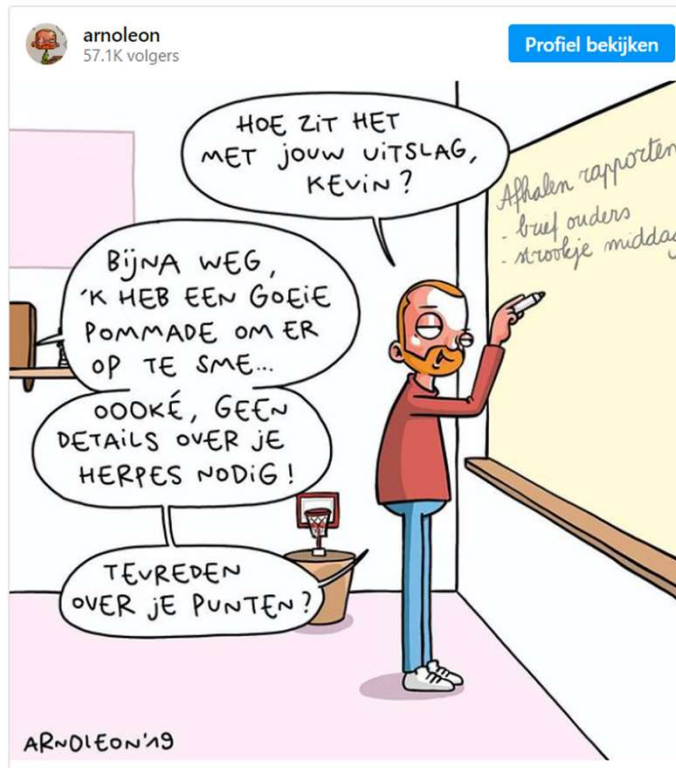 arnoleon
57.1K volgers
Profiel bekijken
HOE ZIT HET
MET JOUW UITSLAG,
KEVIN?
Afhalen rapporten
- brief ouders
- strookje middag
BIJNA WEG,
'K HEB EEN GOEIE
POMMADE OM ER
OP TE SME...
OOOKÉ, GEEN
DETAILS OVER JE
HERPES NODIG!
TEVREDEN
OVER JE PUNTEN?
ARNOLEON'19